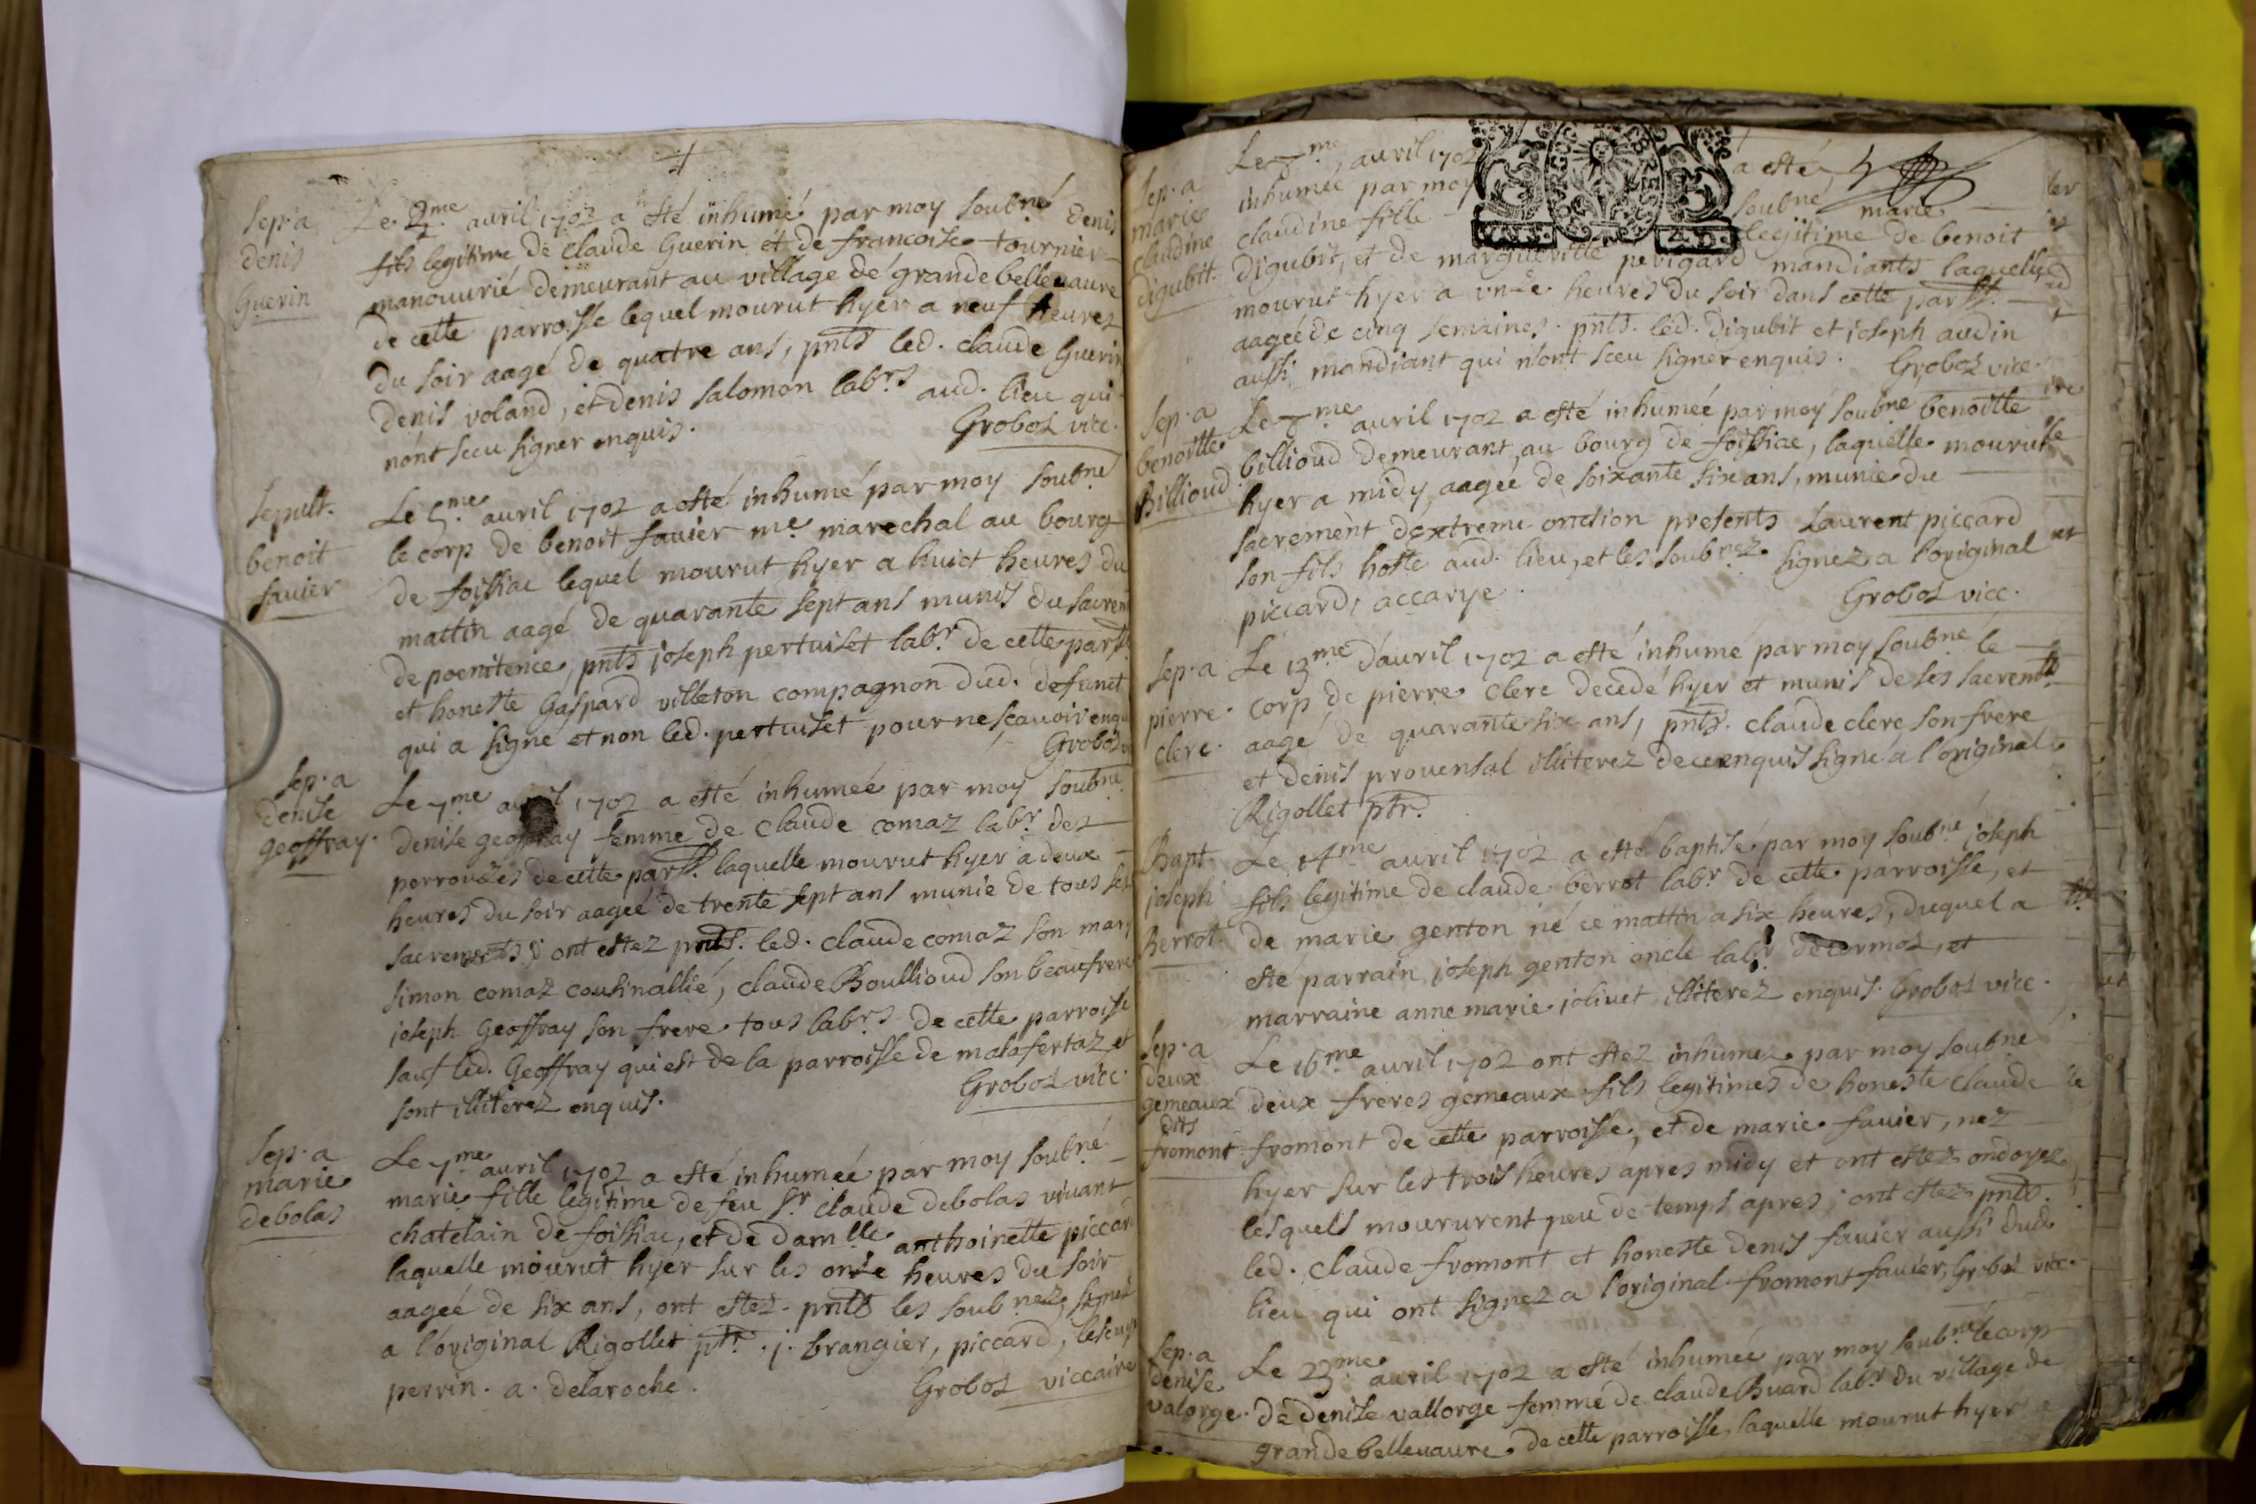 Sep.a
denis
Guerin
Le 2.me avril 1702 a esté inhumé par moy soubné denis
fils legitime de claude Guerin et de francoise tournier
manouurié demeurant au village de grandebelleuaure
de cette parroisse lequel mourut hyer a neuf heures
du soir aagé de quatre ans, pnts led. claude Guerin
denis voland, et denis salomon labrs aud. lieu qui
nont sceu signer enquis.
Groboz vicc.
Sepult.
benoit
fauier
Le 5.me auril 1702 a esté inhumé par moy soubné
le corp de benoit fauier me. marechal au bourg
de foissiac lequel mourut hyer a huict heures du
mattin aagé de quarante sept ans munis du sacrem
de poenitence, pnts joseph pertuiset labr. de cette parss.
et honeste Gaspard villeton compagnon dud. defunct
qui a signé et non led. pertuiset pour ne scauoir enqu
Groboz
Sep.a
denise
geoffray.
Le 7.me auril 1702 a esté inhumeé par moy soubné
denise geoffray femme de claude comaz labr. des
perrouzes de cette parss. laquelle mourut hyer a deux
heures du soir aageé de trente sept ans munie de tous ses
sacrements; ont estez pnts. led. claude comaz son mary
simon comaz cousinallié, claude Boullioud son beaufrere
joseph Geoffray son frere tous labrs de cette parroisse
sauf led. Geoffray qui est de la parroisse de malafertaz et
sont illiterez enquis.
Groboz vicc.
Sep.a
marie
debolas
Le 7.me auril 1702 a esté inhumeé par moy soubné
marie fille legitime de feu Sr. claude debolas viuant
chatelain de foissiac, et de damlle. anthoinette piccard
laquelle mourut hyer sur les onze heures du soir
aageé de six ans, ont estez pnts les soubnez, signez
a l'original Rigollet ptr. j. brangier, piccard,
perrin. a. delaroche.
Groboz viccaire
Sep.a
marie
claudine
digubit.
Le 7.me auril 1702 a esté
inhumeé par moy soubné marie
claudine fille legitime de benoit
digubit, et de margueritte perigard mandiants laquelle
mourut hyer a vnze heures du soir dans cette parss.
aageé de cinq semaines. pnts. led. digubit et joseph audin
aussi mandiant qui n'ont sceu signer enquis. Groboz vicc.
Sep.a
benoitte
Billioud.
Le 7.me auril 1702 a esté inhumeé par moy soubné benoitte
billioud demeurant au bourg de foissiac, laquelle mourut
hyer a midy, aageé de soixante six ans, munie du
sacrement dextreme onction presents Laurent piccard
son fils hoste aud. lieu, et les soubnez. signez a l'original
piccard, accarye.
Groboz vicc.
Sep.a
pierre
clerc.
Le 13.me d'auril 1702 a esté inhumé par moy soubné le
corp de pierre clerc decedé hyer et munis de ses sacremts
aagé de quarante six ans, pnts. claude clerc son frere
et denis prouensal illiterez de ce enquis signé a l'original
Rigollet ptr.
Bapt.
joseph
Berrot.
Le 14.me auril 1702 a esté baptisé par moy soubné joseph
fils legitime de claude berrot labr. de cette parroisse, et
de marie genton né ce mattin a six heures, duquel a
esté parrain joseph genton oncle labr. de cormoz, et
marraine anne marie joliuet illiterez enquis. Groboz vicc.
Sep.a
deux
gemeaux
dits
fromont
Le 16.me auril 1702 ont estez inhumez par moy soubné
deux freres gemeaux fils legitimes de honeste claude
fromont de cette parroisse, et de marie fauier, nez
hyer sur les trois heures apres midy et ont estez ondoyez
lesquels moururent peu de temps apres; ont estez pnts.
led. claude fromont et honeste denis fauier aussi dud.
lieu qui ont signez a l'original fromont fauier, Groboz vicc.
Sep.a
denise
valorge.
Le 23.me auril 1702 a esté inhumeé par moy soubné le corp
de denise vallorge femme de claude Buard labr. du village de
grandebelleuaure de cette parroisse, laquelle mourut hyer a